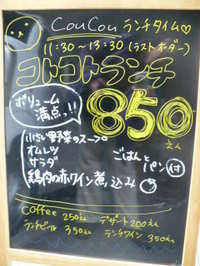 CouCou ランチタイム♡
11:30～13:30 (ラストオーダー)
コトコトランチ
ボリューム
満点っ!!
850
えん
小さい野菜のスープ
オムレツ
サラダ
ごはんとパン 付
鶏肉の赤ワイン煮込み
Coffee 250えん デザート200えん
350えん ランチワイン 350えん